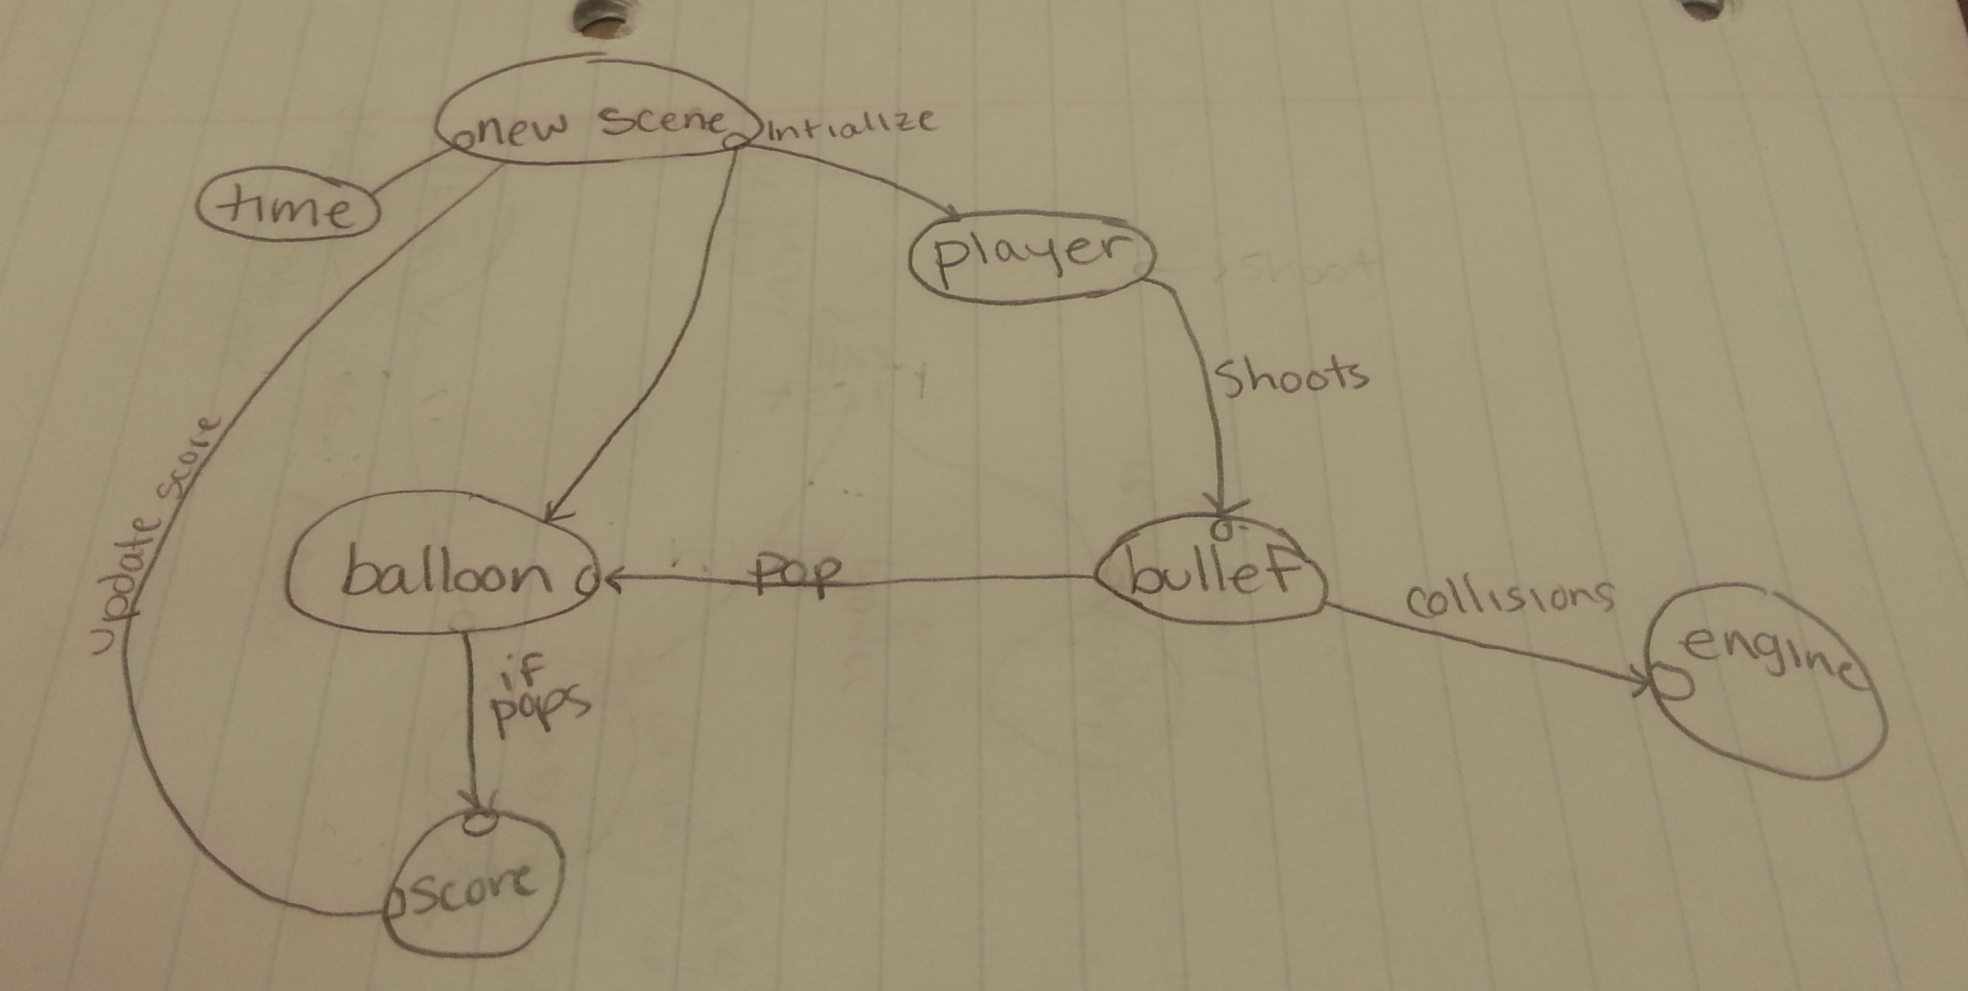 new scene
Intialize
time
player
Shoot
Shoots
update score
balloon
pop
bullet
collisions
engine
if
pops
score